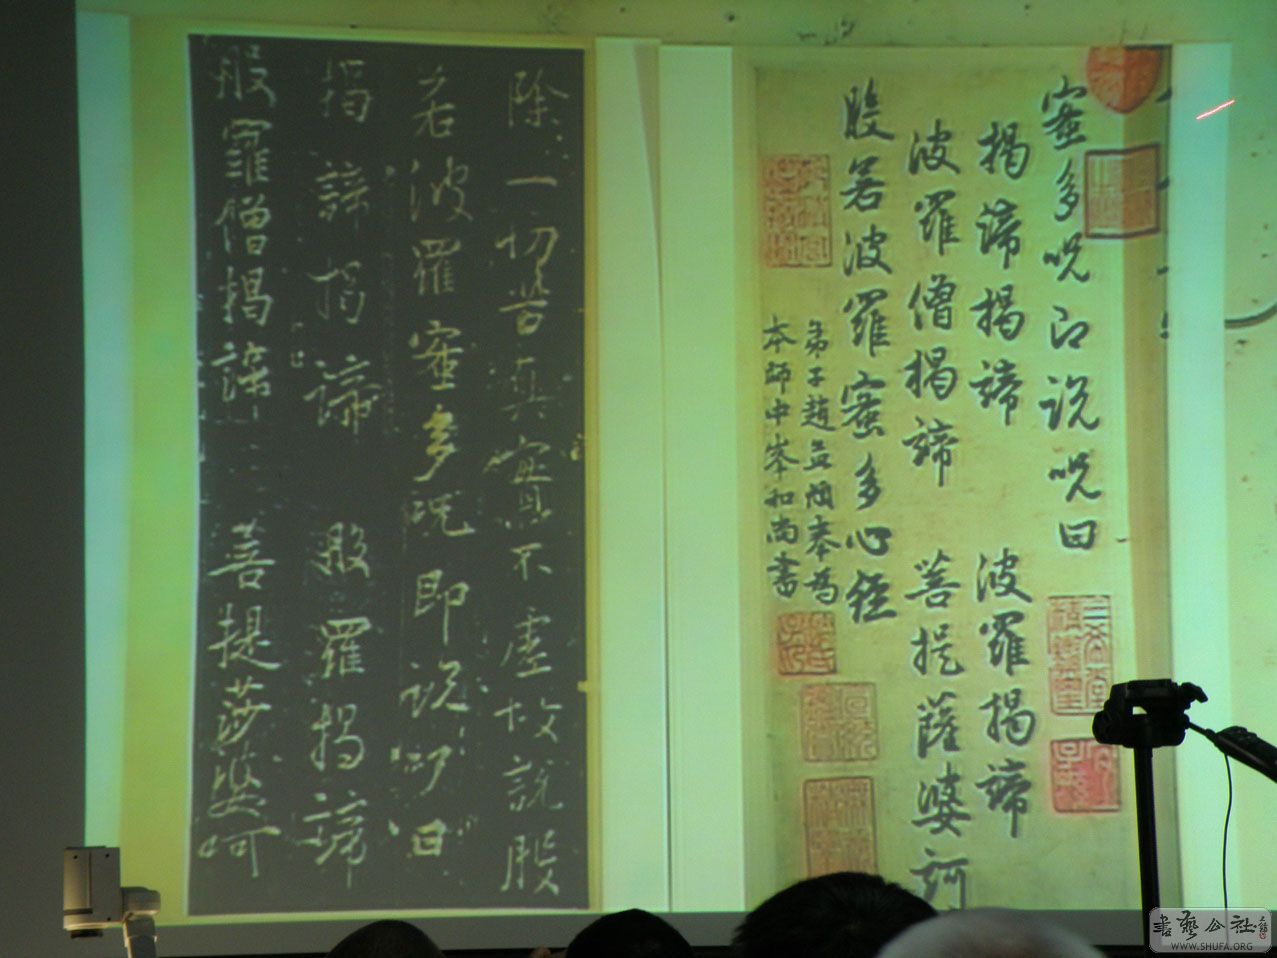 蜜多呪即說呪曰
揭諦揭諦 波羅揭諦
波羅僧揭諦 菩提薩婆訶
般若波羅蜜多心經
弟子趙孟頫奉為
本師中峯和尚書
除一切苦真實不虛故說般
若波羅蜜多呪即說呪曰
揭諦揭諦 般羅揭諦
般羅僧揭諦 菩提莎婆呵
書藝公社
WWW.SHUFA.ORG